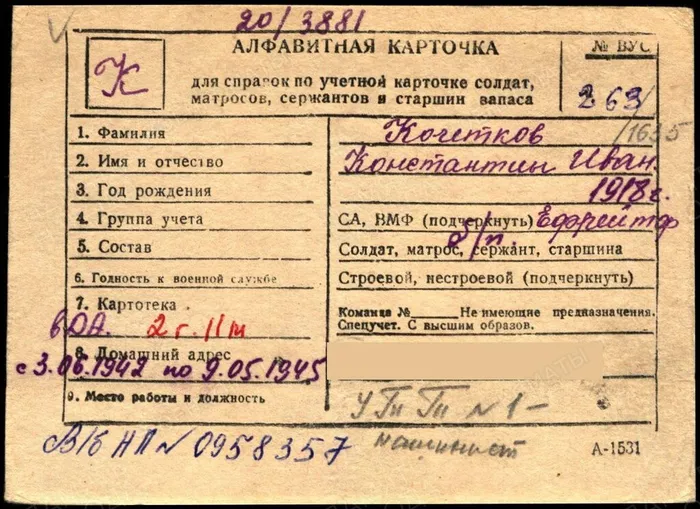 20/3881
АЛФАВИТНАЯ КАРТОЧКА
№ ВУС
К
для справок по учетной карточке солдат,
матросов, сержантов и старшин запаса
263
/1635
1. Фамилия
Кочетков
2. Имя и отчество
Константин Иван.
3. Год рождения
1918 г.
4. Группа учета
СА, ВМФ (подчеркнуть) Ефрейтор
б/п.
5. Состав
Солдат, матрос, сержант, старшина
6. Годность к военной службе
Строевой, нестроевой (подчеркнуть)
7. Картотека
Команда № Не имеющие предназначения.
Спецучет. С высшим образов.
ВОА. 2 г. IIт
8. Домашний адрес
с 3.06.1942 по 9.05.1945
9. Место работы и должность
N 1 -
машинист
В/б НП № 0958357
А-1531